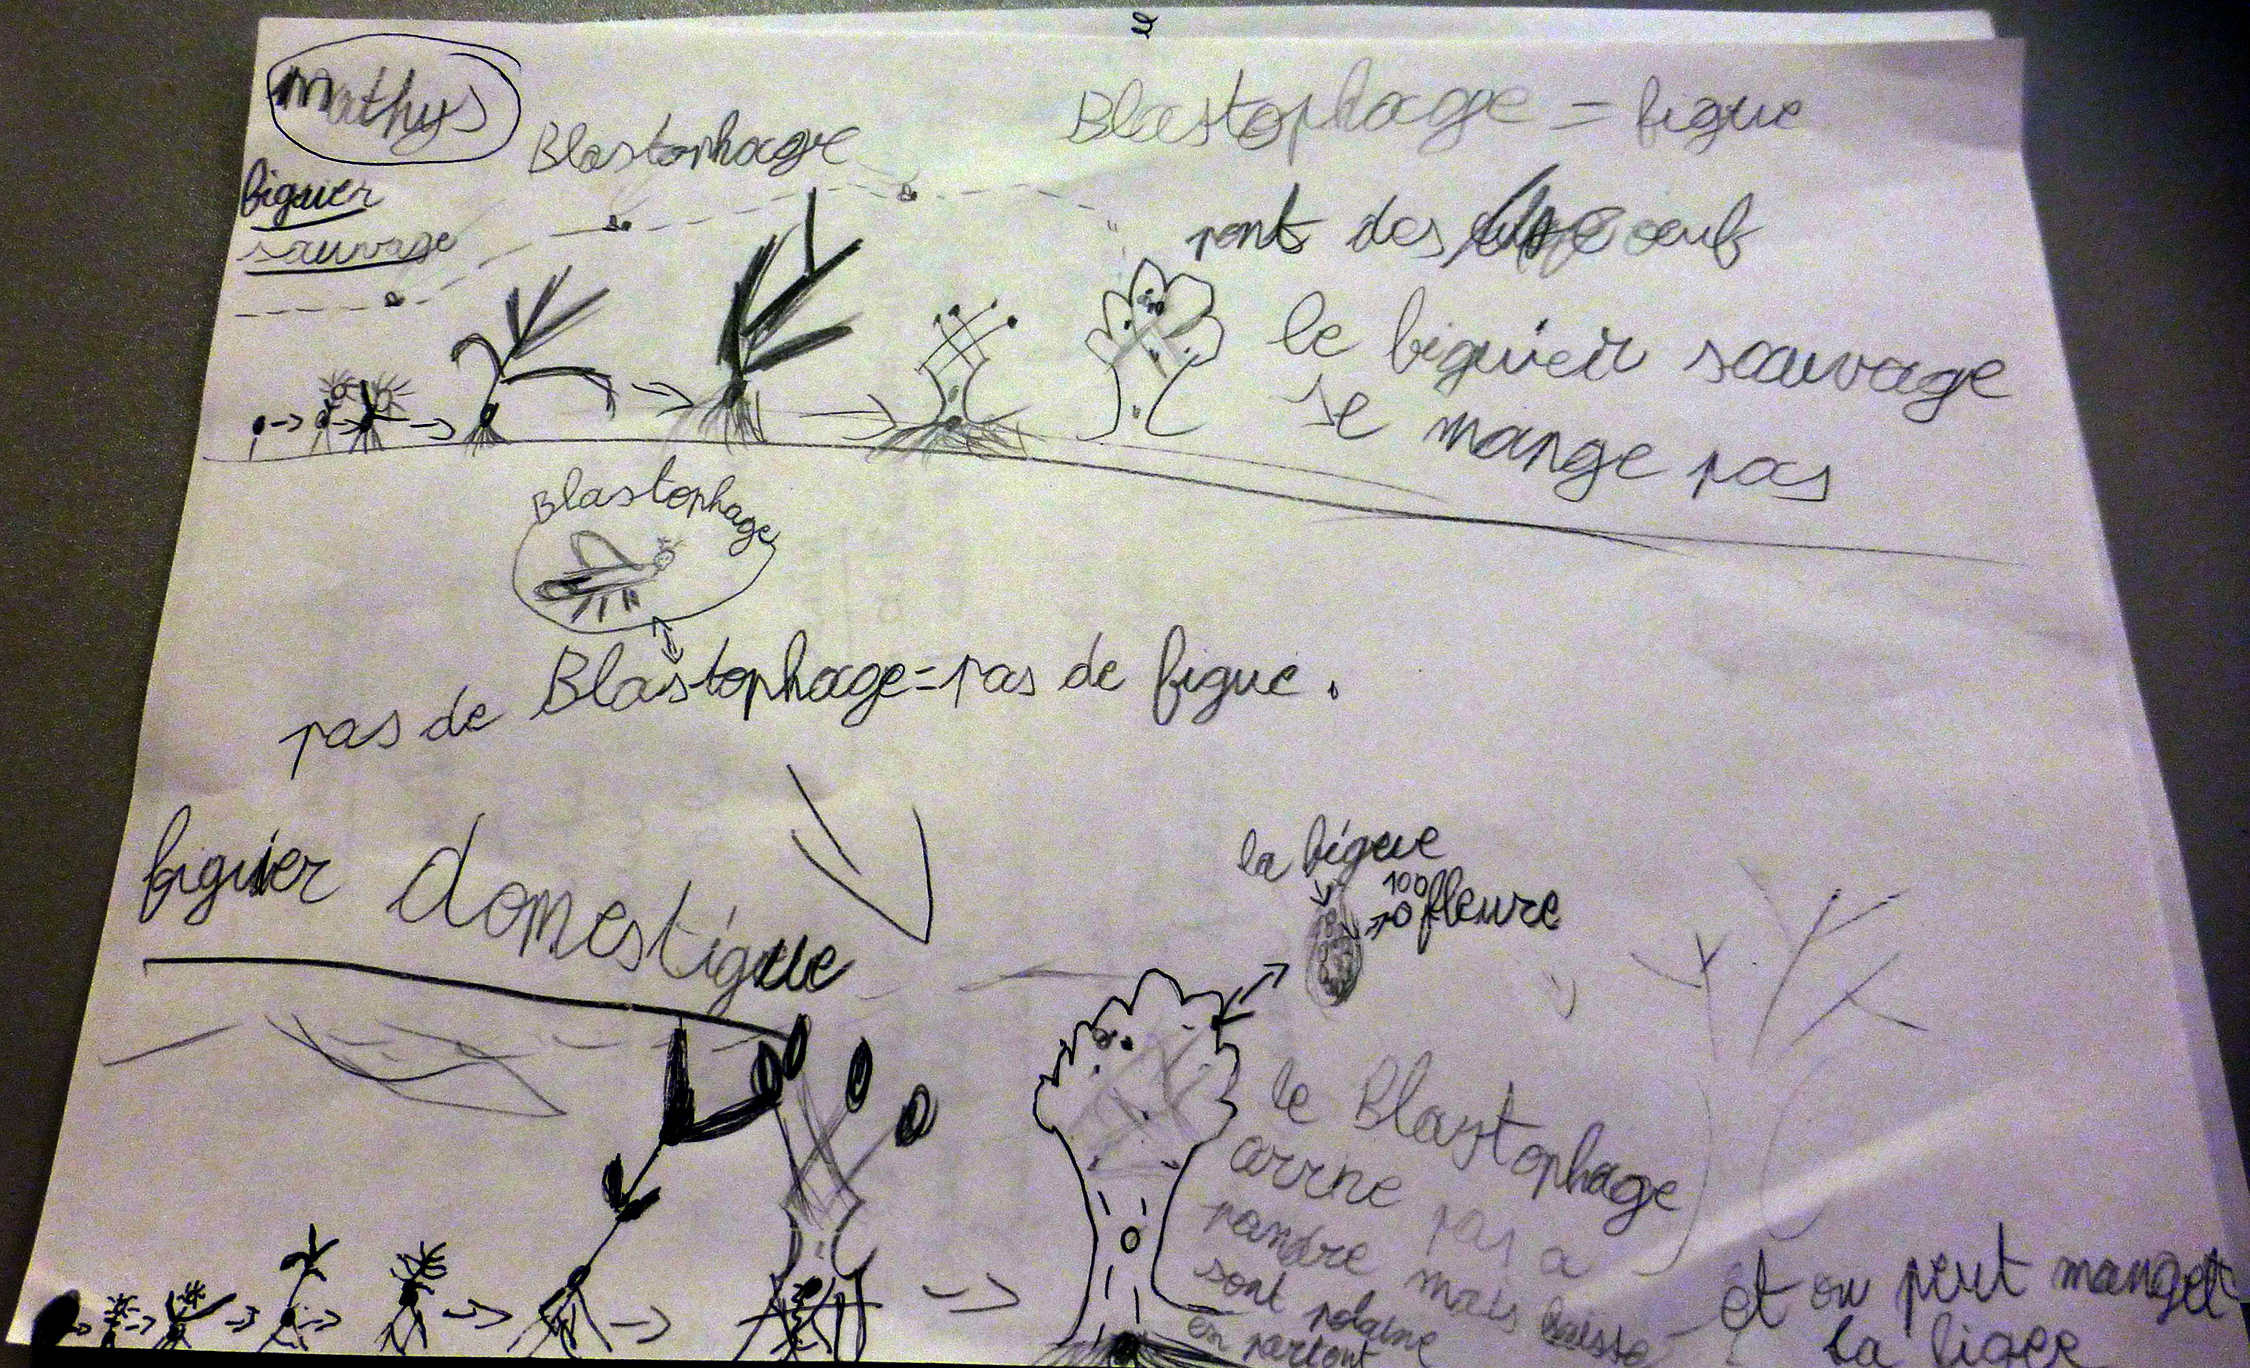 Mathys
Blastophage
Blastophage = figue
figuier
sauvage
pont des oeuf
le figuieir sauvage
se mange pas
Blastophage
pas de Blastophage = pas de figue.
figuier domestique
la figue
100
fleure
le Blastophage
arrive pas a
pandre mais laisse
sont polaine
en partant
et on peut manget
la figee